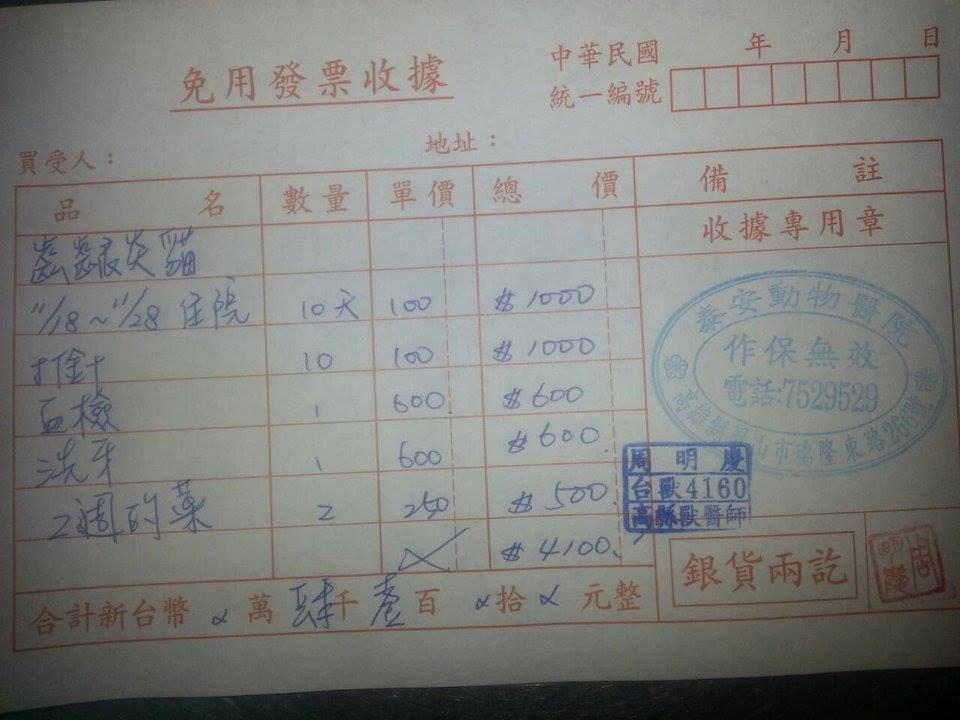 免用發票收據
中華民國 年 月 日
統一編號
買受人： 地址：
品名 數量 單價 總價 備註
收據專用章
齒齦炎貓
11/18~11/28 住院 10天 100 $1000
打針 10 100 $1000
血檢 1 600 $600
洗牙 1 600 $600
2週的藥 2 250 $500
$4100
合計新台幣 萬 肆千 壹百 拾 元整
泰安動物醫院
作保無效
電話:7529529
高雄縣鳳山市瑞隆東路268號
周明慶
台獸4160
高縣獸醫師
銀貨兩訖